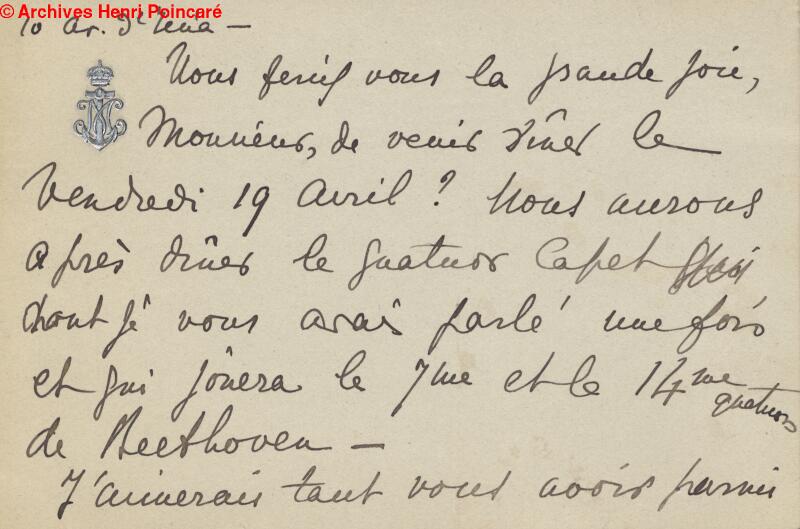 © Archives Henri Poincaré
10 av. d'Iéna —
Nous feriez vous la grande joie,
Monsieur, de venir dîner le
Vendredi 19 Avril ? Nous aurons
après dîner le quatuor Capet
dont je vous avais parlé une fois
et qui jouera le 7me et le 14me
quatuors
de Beethoven —
J'aimerais tant vous avoir parmi